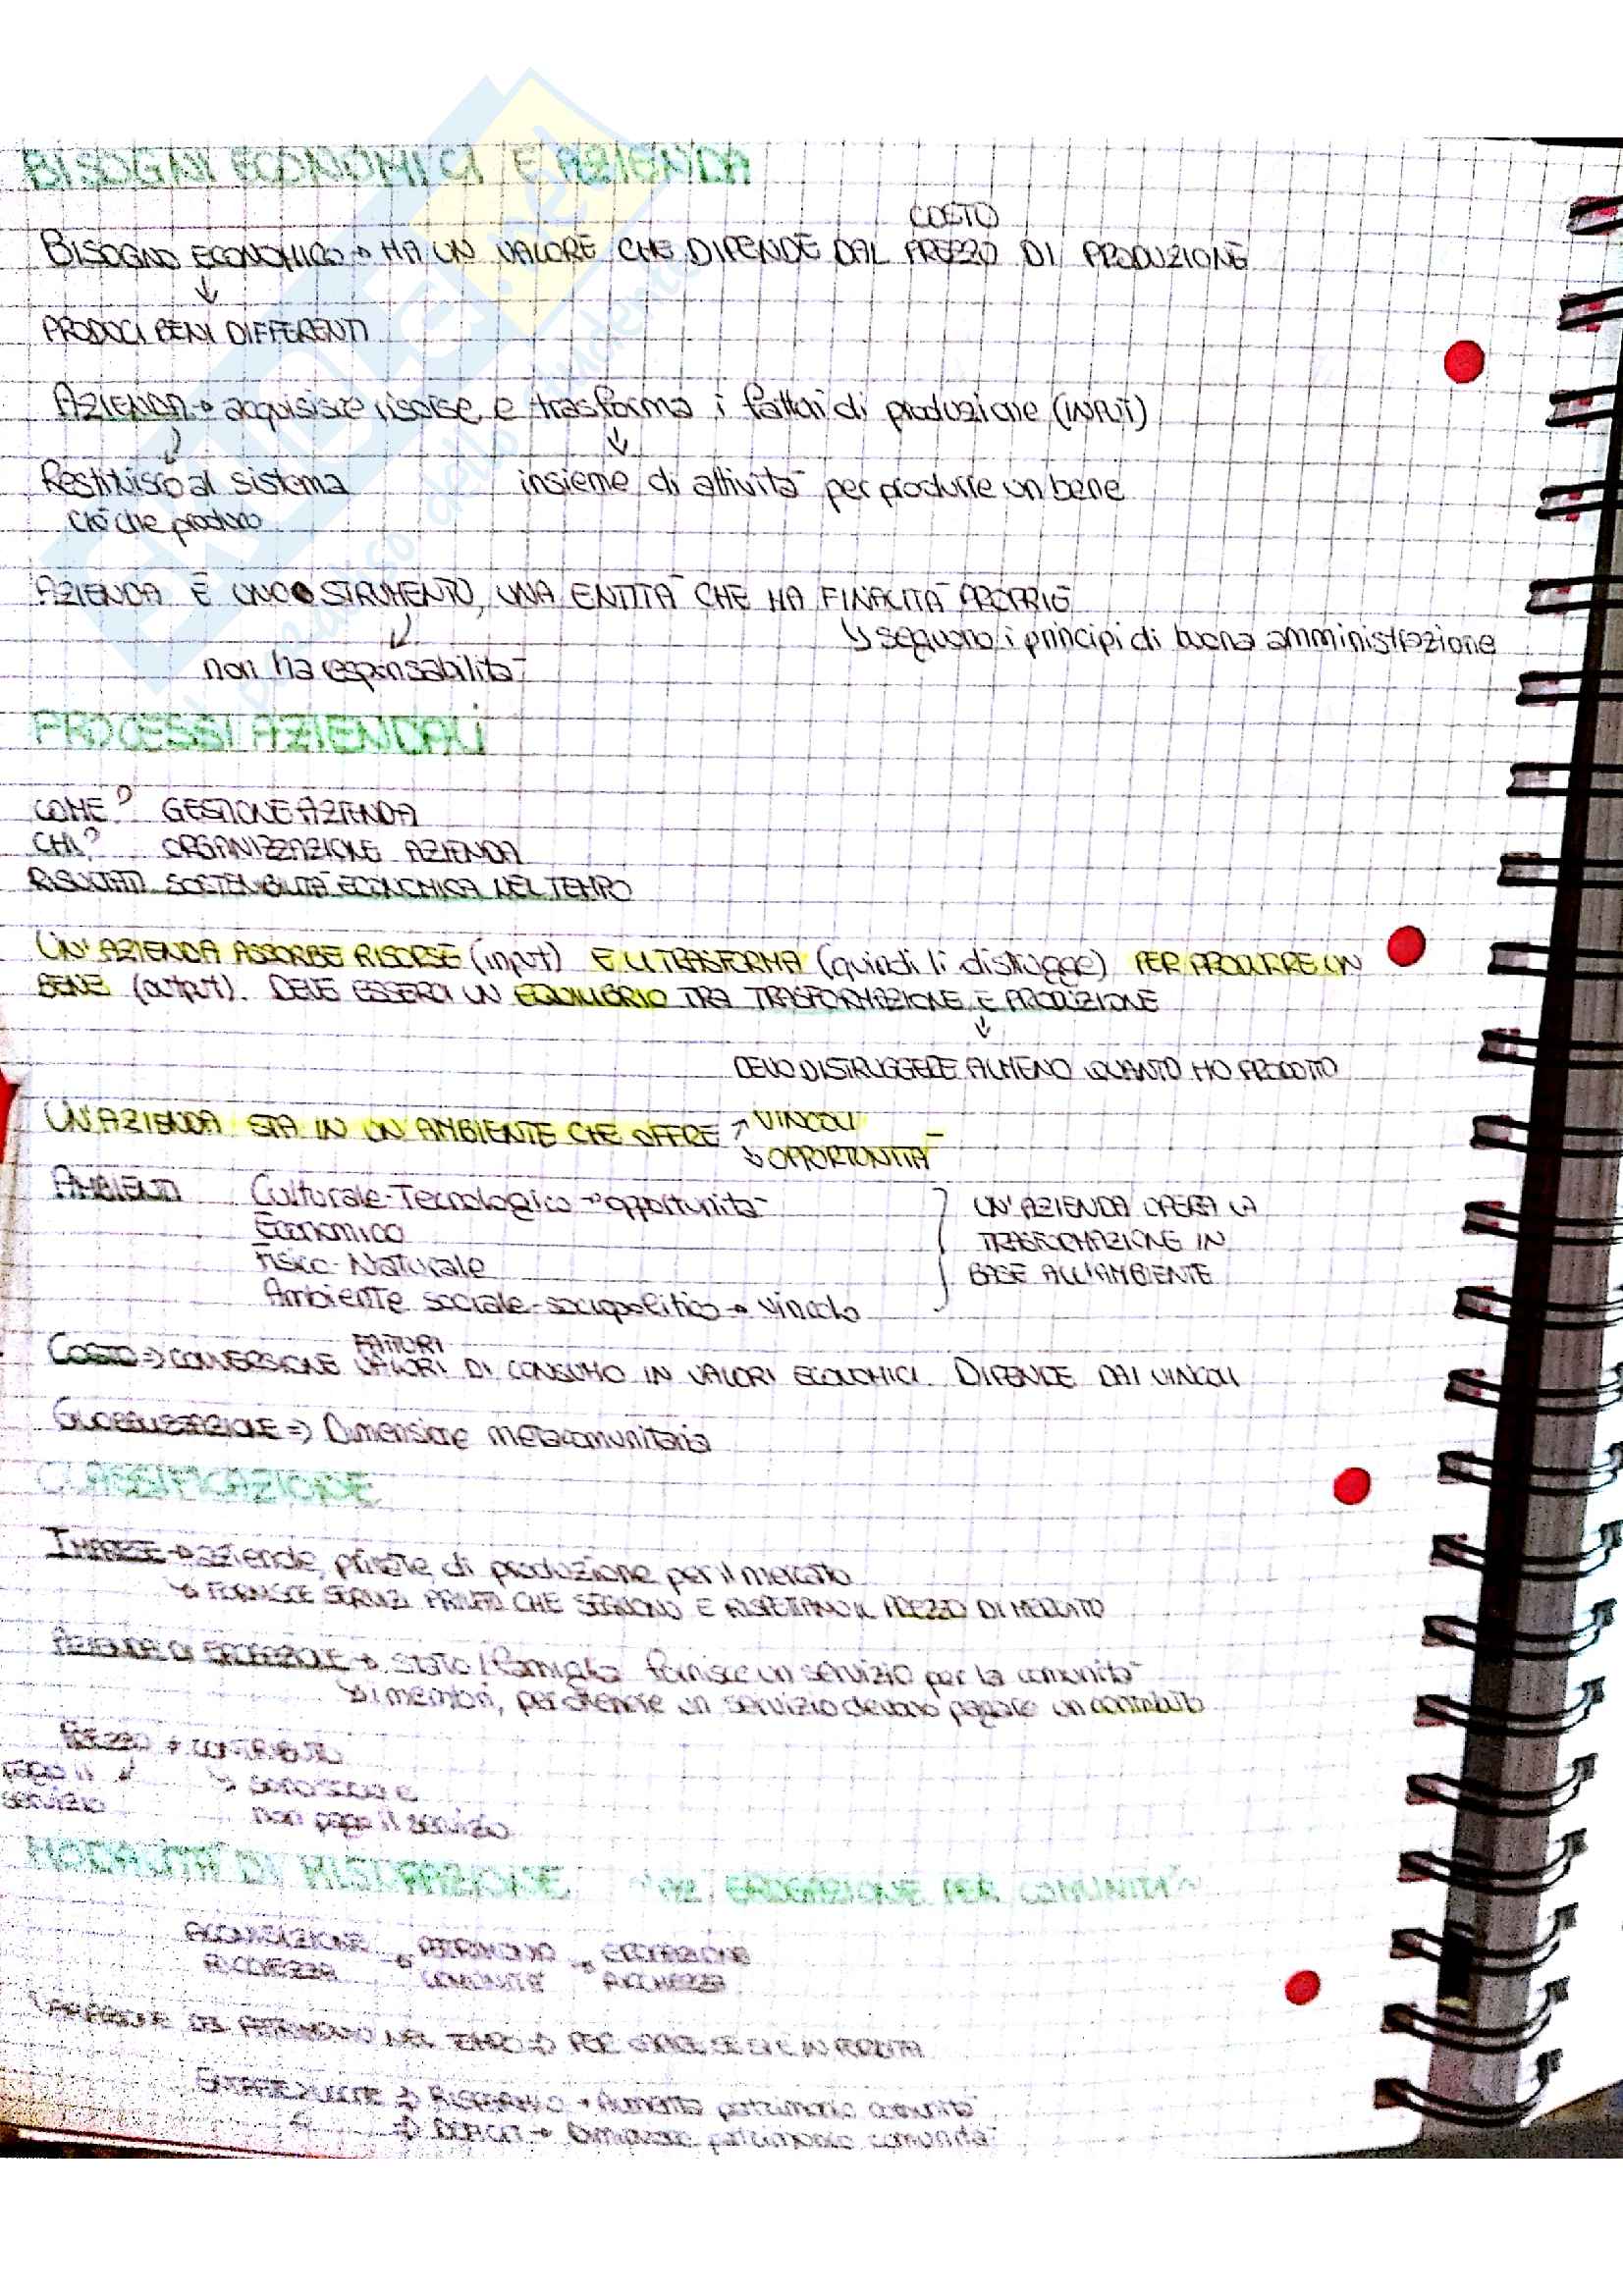 BISOGNI ECONOMICI E AZIENDA
COSTO
BISOGNO ECONOMICO → HA UN VALORE CHE DIPENDE DAL PREZZO DI PRODUZIONE
↓
PRODUCI BENI DIFFERENTI
AZIENDA → acquisisce risorse e trasforma i fattori di produzione (INPUT)
Restituisco al sistema insieme di attività per produrre un bene
ciò che produco
AZIENDA È UNO STRUMENTO, UNA ENTITÀ CHE HA FINALITÀ PROPRIE
↳ seguono i principi di buona amministrazione
non ha responsabilità
PROCESSI AZIENDALI
COME? GESTIONE AZIENDA
CHI? ORGANIZZAZIONE AZIENDA
RISULTATI SOSTENIBILITÀ ECONOMICA NEL TEMPO
UN'AZIENDA ASSORBE RISORSE (input) E LI TRASFORMA (quindi li distrugge) PER PRODURRE UN
BENE (output). DEVE ESSERCI UN EQUILIBRIO TRA TRASFORMAZIONE E PRODUZIONE
↓
DEVO DISTRUGGERE ALMENO QUANTO HO PRODOTTO
UN'AZIENDA STA IN UN AMBIENTE CHE OFFRE ↗ VINCOLI
↘ OPPORTUNITÀ
AMBIENTI Culturale-Tecnologico → opportunità UN'AZIENDA OPERA LA
Economico TRASFORMAZIONE IN
Fisico-Naturale BASE ALL'AMBIENTE
Ambiente sociale-sociopolitico → vincolo
FATTORI
COSTO ⇒ CONVERSIONE VALORI DI CONSUMO IN VALORI ECONOMICI. DIPENDE DAI VINCOLI
GLOBALIZZAZIONE ⇒ Dimensione metacomunitaria
CLASSIFICAZIONE
IMPRESE → aziende private di produzione per il mercato
↳ FORNISCE SERVIZI PRIVATI CHE SEGUONO E RISPETTANO IL PREZZO DI MERCATO
AZIENDA DI EROGAZIONE → stato / famiglia fornisce un servizio per la comunità
↳ i membri, per ottenere un servizio devono pagare un contributo
PREZZO ≠ CONTRIBUTO
pago il
servizio
non pago il servizio
MODALITÀ DI MISURAZIONE AZ. EROGAZIONE PER COMUNITÀ
ACQUISIZIONE → PATRIMONIO → EROGAZIONE
RICCHEZZA COMUNITÀ RICCHEZZA
VARIAZIONE DEL PATRIMONIO NEL TEMPO ⇒ PER CAPIRE SE SI È IN PERDITA
ENTRATE > USCITE ⇒ RISPARMIO → Aumento patrimonio comunità
⇒ DEFICIT → patrimonio comunità